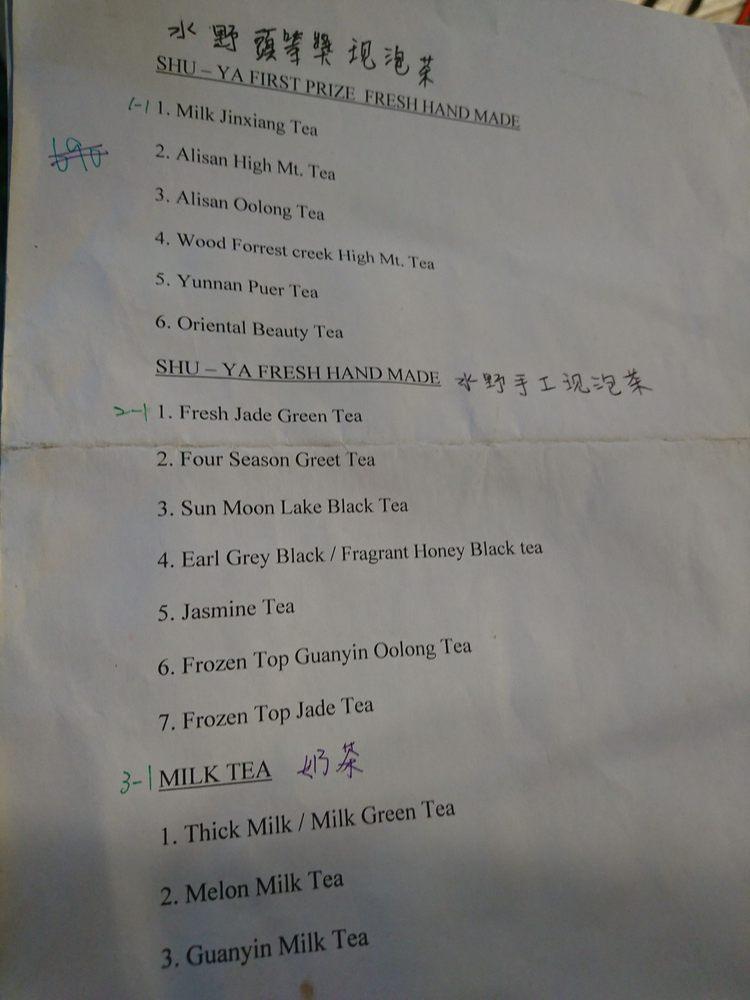 水野頭等獎现泡茶
SHU – YA FIRST PRIZE FRESH HAND MADE
1-1 1. Milk Jinxiang Tea
2. Alisan High Mt. Tea
3. Alisan Oolong Tea
4. Wood Forrest creek High Mt. Tea
5. Yunnan Puer Tea
6. Oriental Beauty Tea
SHU – YA FRESH HAND MADE 水野手工现泡茶
2-1 1. Fresh Jade Green Tea
2. Four Season Greet Tea
3. Sun Moon Lake Black Tea
4. Earl Grey Black / Fragrant Honey Black tea
5. Jasmine Tea
6. Frozen Top Guanyin Oolong Tea
7. Frozen Top Jade Tea
3-1 MILK TEA 奶茶
1. Thick Milk / Milk Green Tea
2. Melon Milk Tea
3. Guanyin Milk Tea